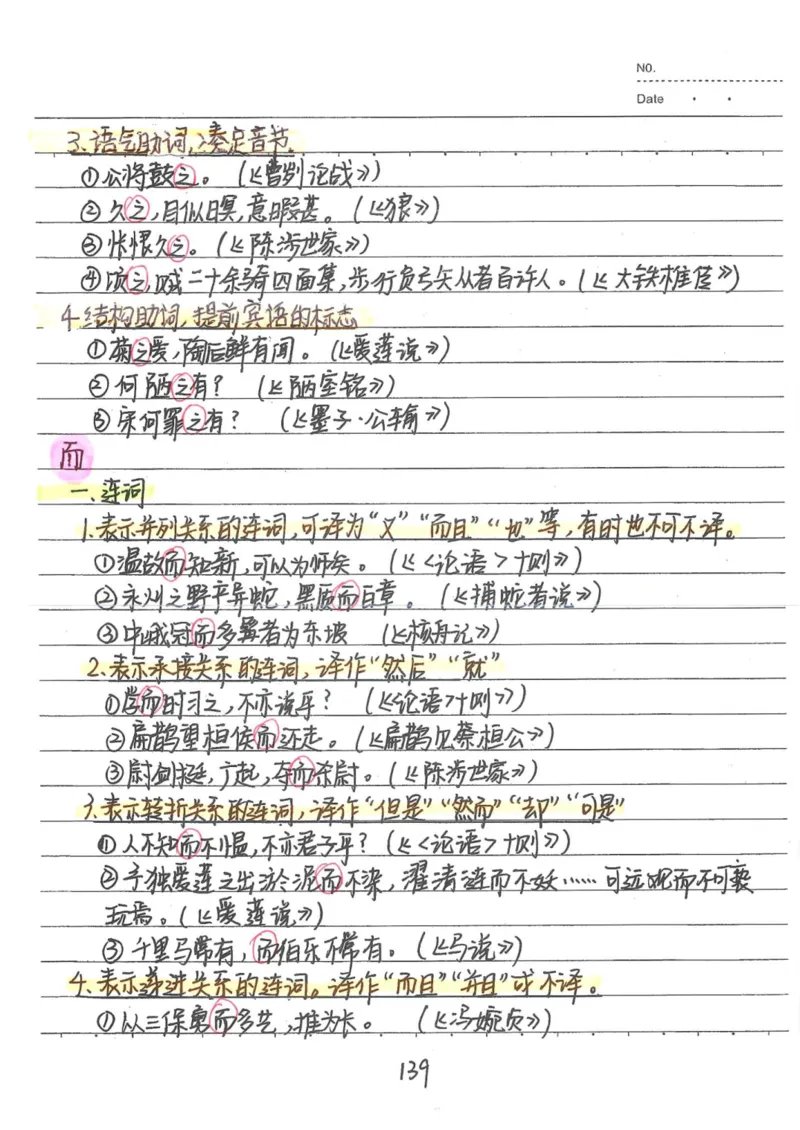 NO.
Date
3.语气助词,凑足音节.
①公将鼓之。(《曹刿论战》)
②久之,目似瞑,意暇甚。(《狼》)
③怅恨久之。(《陈涉世家》)
④顷之,贼二十余骑四面集,步行负弓矢从者百许人。(《大铁椎传》)
4.结构助词,提前宾语的标志
①菊之爱,陶后鲜有闻。(《爱莲说》)
②何陋之有?(《陋室铭》)
③宋何罪之有?(《墨子·公输》)
而
一.连词
1.表示并列关系的连词,可译为“又”“而且”“也”等,有时也不可不译。
①温故而知新,可以为师矣。(《<论语>十则》)
②永州之野产异蛇,黑质而白章。(《捕蛇者说》)
③中峨冠而多髯者为东坡 (《核舟记》)
2.表示承接关系的连词,译作“然后”“就”
①学而时习之,不亦说乎?(《<论语>十则》)
②扁鹊望桓侯而还走。(《扁鹊见蔡桓公》)
③尉剑挺,广起,夺而杀尉。(《陈涉世家》)
3.表示转折关系的连词,译作“但是”“然而”“却”“可是”
①人不知而不愠,不亦君子乎?(《<论语>十则》)
②予独爱莲之出淤泥而不染,濯清涟而不妖……可远观而不可亵
玩焉。(《爱莲说》)
③千里马常有,而伯乐不常有。(《马说》)
4.表示递进关系的连词。译作“而且”“并且”或不译。
①以三保勇而多艺,推为长。(《冯婉贞》)
139